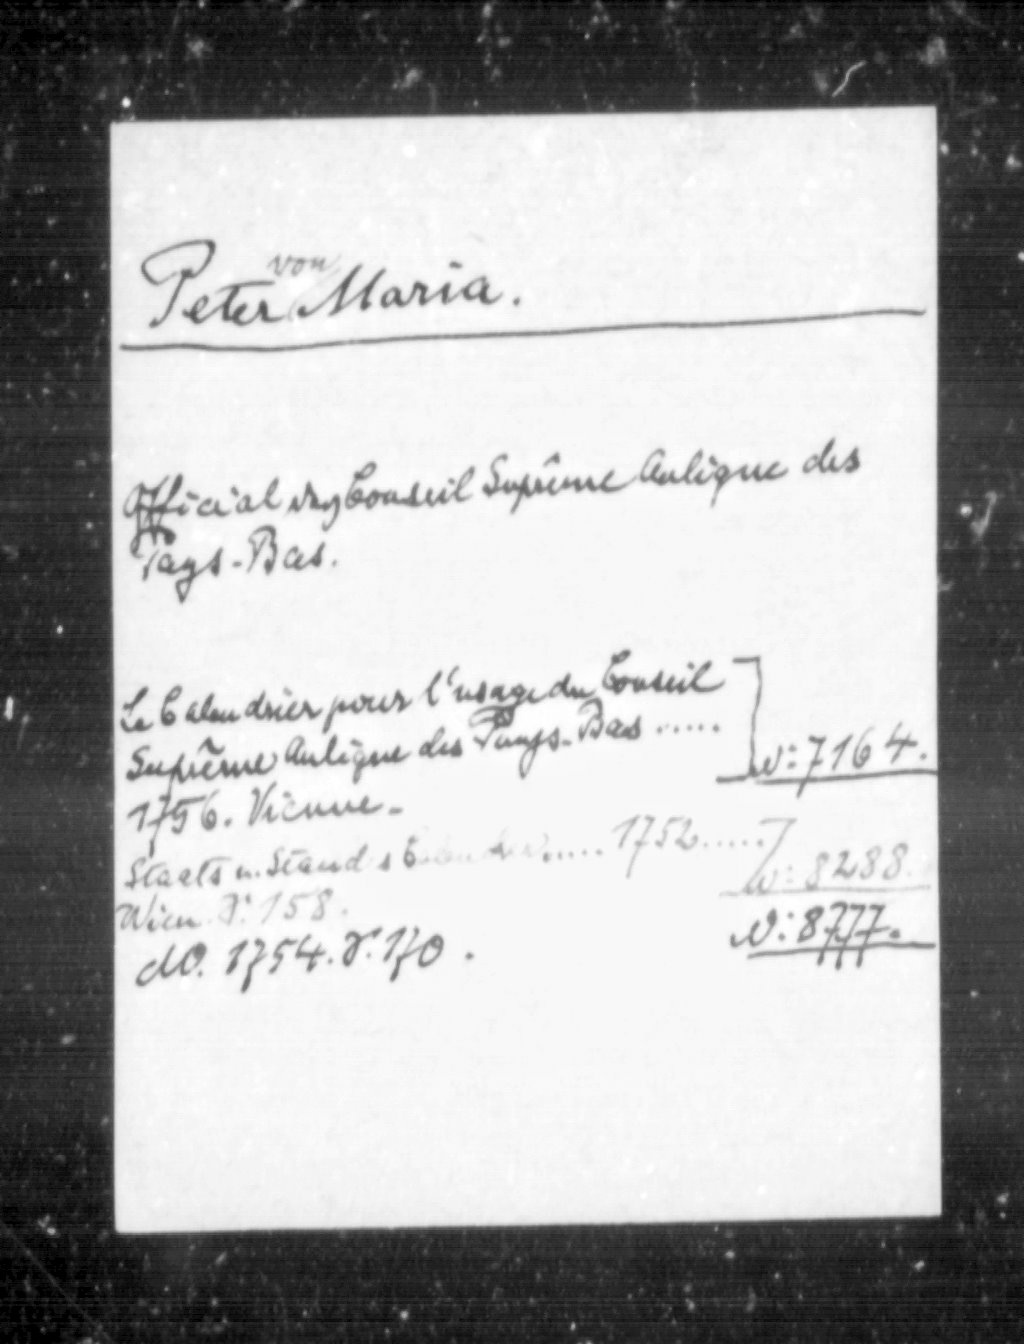 von
Peter Maria.
Official des Conseil Suprême Aulique des
Pays-Bas.
Le Calendrier pour l'usage du Conseil
Suprême Aulique des Pays-Bas ..... N: 7164.
1756. Vienne -
Staats u. Stands Calender ..... 1752 .....
Wien S: 158. N: 8288.
dto. 1754. S. 170. N: 8777.